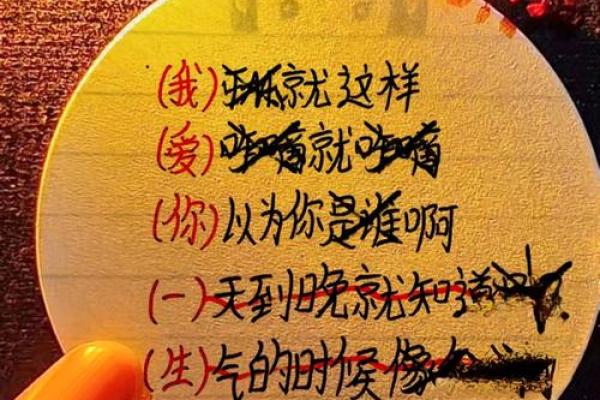 (我)就这样
(爱)咋嘀就咋嘀
(你)以为你是谁啊
(一)天到晚就知道
(生)气的时候像